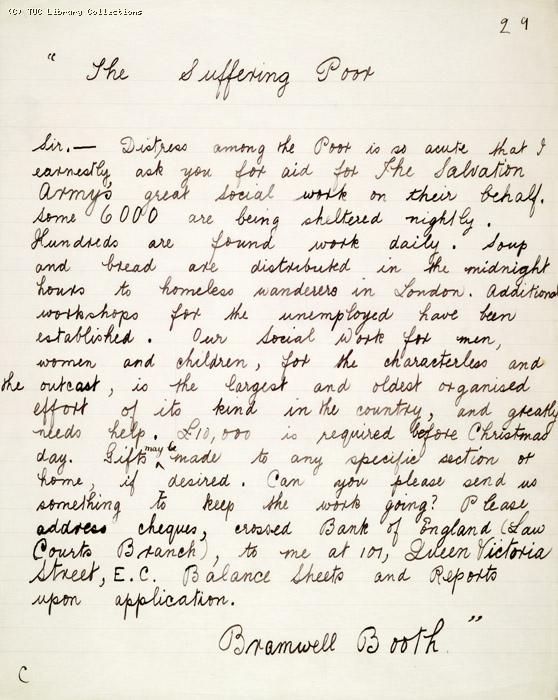 (C) TUC Library Collections
29
" The Suffering Poor
Sir. — Distress among the Poor is so acute that I
earnestly ask you for aid for The Salvation
Army's great social work on their behalf.
Some 6000 are being sheltered nightly.
Hundreds are found work daily. Soup
and bread are distributed in the midnight
hours to homeless wanderers in London. Additional
workshops for the unemployed have been
established. Our Social Work for men,
women and children, for the characterless and
the outcast, is the largest and oldest organised
effort of its kind in the country, and greatly
needs help. £10,000 is required before Christmas
day. Gifts may be made to any specific section or
home, if desired. Can you please send us
something to keep the work going? Please
address cheques, crossed Bank of England (Law
Courts Branch), to me at 101, Queen Victoria
Street, E.C. Balance Sheets and Reports
upon application.
Bramwell Booth. "
C